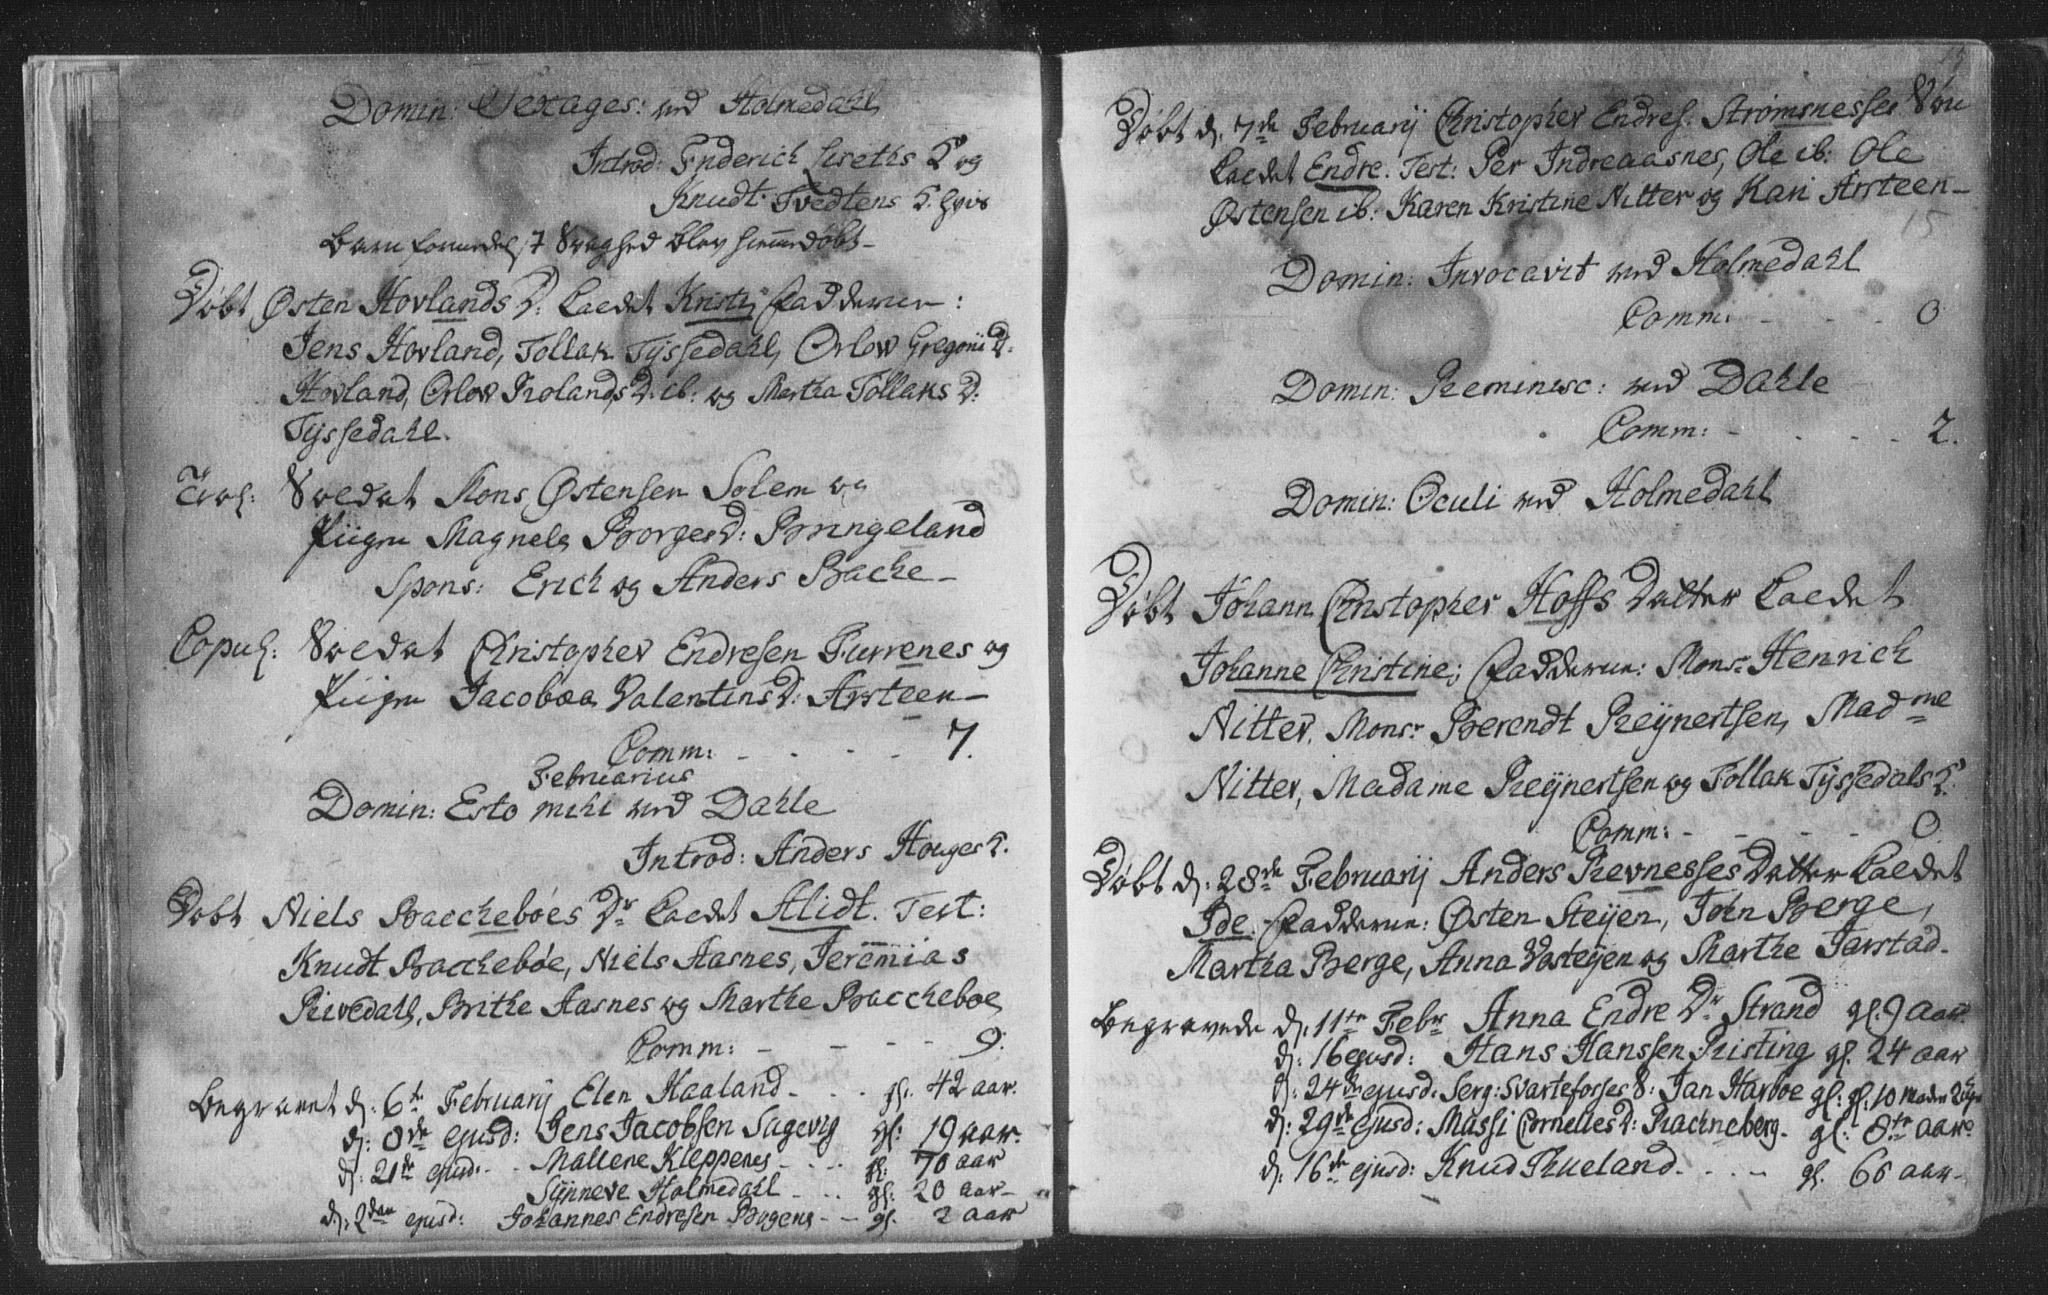 Domin: Sexages: ved Holmedahl
Introd: Friderich Sæths K og
Knudt Tvedtens K. hvis
Barn formedelst Svaghed blev hiemmedøbt
Døbt Østen Hovlands D: kaldet Kristi, Fadderne:
Jens Hovland, Tollak Tÿssedahl, Orlov Gregorii D:
Hovland, Orlov RolandsD. ib: og Martha Tollaks D:
Tÿssedahl.
Trol: Soldat Mons Østensen Solem og
Piigen Magnela BorgesD: Bringeland
Spons: Erich og Anders Bache
Copul: Soldat Christopher Endresen Furrenes og
Piigen Jacobæa ValentinsD: Arsteen
Comm: - - - - 7.
Februarius
Domin: Esto mihi ved Dahle
Introd: Anders Houges K.
Døbt Niels Baccheboes Dr kaldet Alidt. Test:
Knudt Bacchebøe, Niels Aasnes, Jeremias
Rivedahl, Brithe Aasnes og Marthe Baccheboe
Comm: - - - - 9.
Begravet d: 6te Februarij Elen Haaland - - gl. 42 aar.
d: 8de ejusd: Jens Jacobsen Sagevig gl: 19 aar.
d: 21de ejusd: - - Mallene Kleppenes - - - gl: 70 aar
Sÿnneve Holmedahl - - - gl: 20 aar
d: 2den ejusd: Johannes Endresen Bogens - - gl. 2 aar
15
Døbt d: 7de Februarij Christopher Endres. Strømsnesses Søn
kaldet Endre. Test: Per Indreaasnes, Ole ib: Ole
Østensen ib: Karen Kristine Nitter og Kari Arsteen
15
Domin: Invocavit ved Holmedahl
Comm: - - - 0
Domin: Reminisc: ved Dahle
Comm: - - - - 2.
Domin: Oculi ved Holmedahl
Døbt Johann Christopher Hoffs Datter kaldet
Johanne Christine; Fadderne: Monsr Henrich
Nitter, Monsr Berendt Reÿnertsen, Madme
Nitter, Madame Reÿnertsen og Tollak Tÿssedals K.
Comm: - - - - 0
Døbt d: 28de Februarij Anders Revnesses Datter kaldet
Ide. Fadderne: Østen Steÿen, John Berge,
Martha Berge, Anna Vasteÿen og Marthe Jarstad.
Begravede d: 11te Febr Anna Endre Dr Strand gl. 9 aar.
d: 16 ejusd: Hans Hanssen Risting gl. 24 aar
d: 24de ejusd: Serg: Svartefosses S: Jan Harboe gl: 10
d: 29de ejusd: Massi CornellesD: Rachneberg. gl: 8te aar.
d: 16de ejusd: Knud Thueland - - - gl. 60 aar.